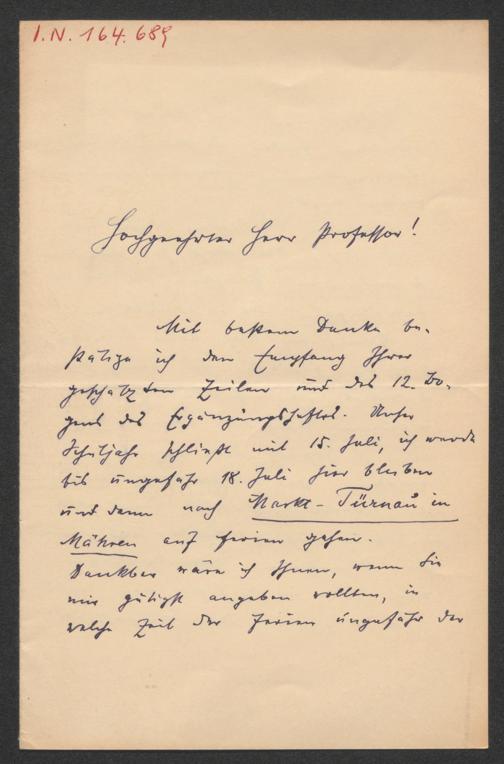 I.N. 164.689
Hochgeehrter Herr Professor!
Mit bestem Danke be-
stätige ich den Empfang Ihrer
geschätzten Zeilen und des 12. Bo-
gens des Ergänzungsheftes. Unser
Schuljahr schließt mit 15. Juli, ich werde
bis ungefähr 18. Juli hier bleiben
und dann nach Markt-Türnau in
Mähren auf Ferien gehen.
Dankbar wäre ich Ihnen, wenn Sie
mir gütigst angeben wollten, in
welche Zeit der Ferien ungefähr der